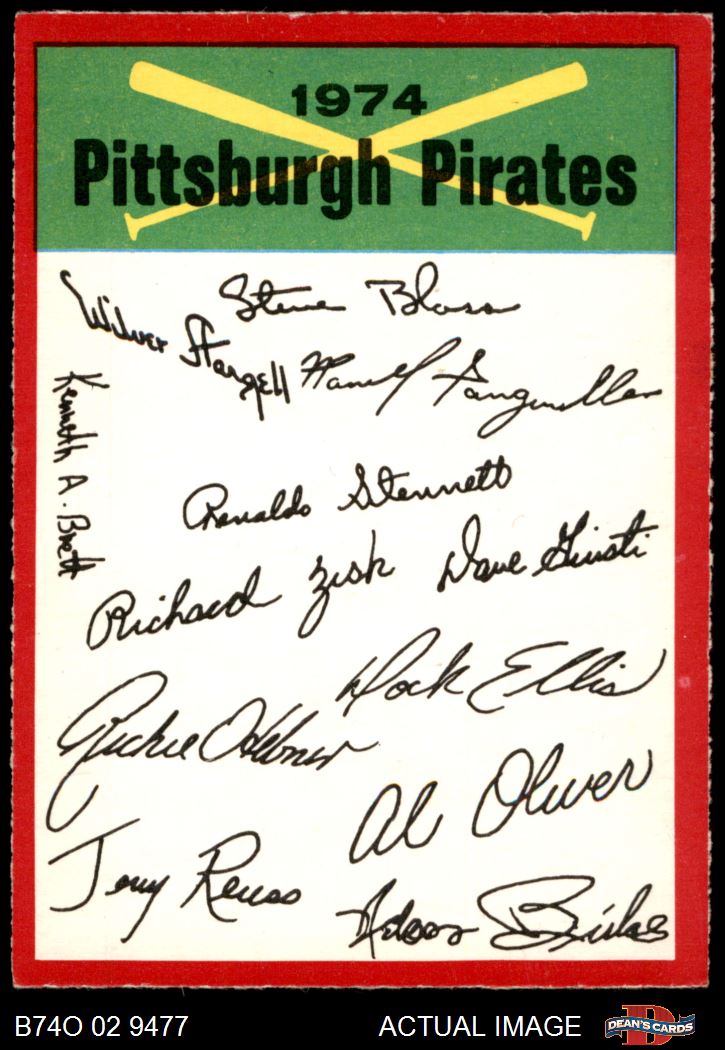 1974
Pittsburgh Pirates
Steve Blass
Wilver Stargell
Manuel Sanguillen
Kenneth A. Brett
Renaldo Stennett
Richard Zisk
Dave Giusti
Dock Ellis
Richie Hebner
Al Oliver
Jerry Reuss
Nelson Briles
B74O 02 9477
ACTUAL IMAGE
D
DEAN'S CARDS